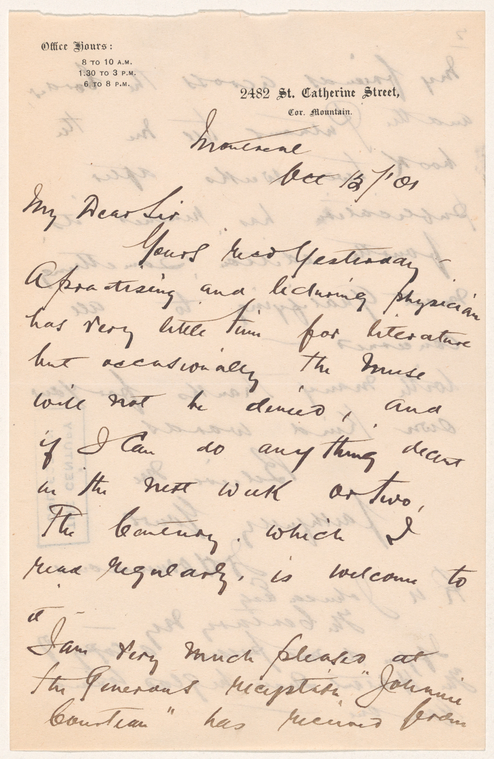 Office Hours:
8 TO 10 A.M.
1.30 TO 3 P.M.
6 TO 8 P.M.
2482 St. Catherine Street,
Cor. Mountain.
Montreal
Oct 13/01
My Dear Sir
Yours recd yesterday -
A practising and lecturing physician
has very little time for literature
but occasionally the Muse
will not be denied, and
if I can do anything decent
in the next week or two,
The Century, which I
read regularly, is welcome to
it -
I am very much pleased at
the generous reception "Johnnie
Courteau" has received from